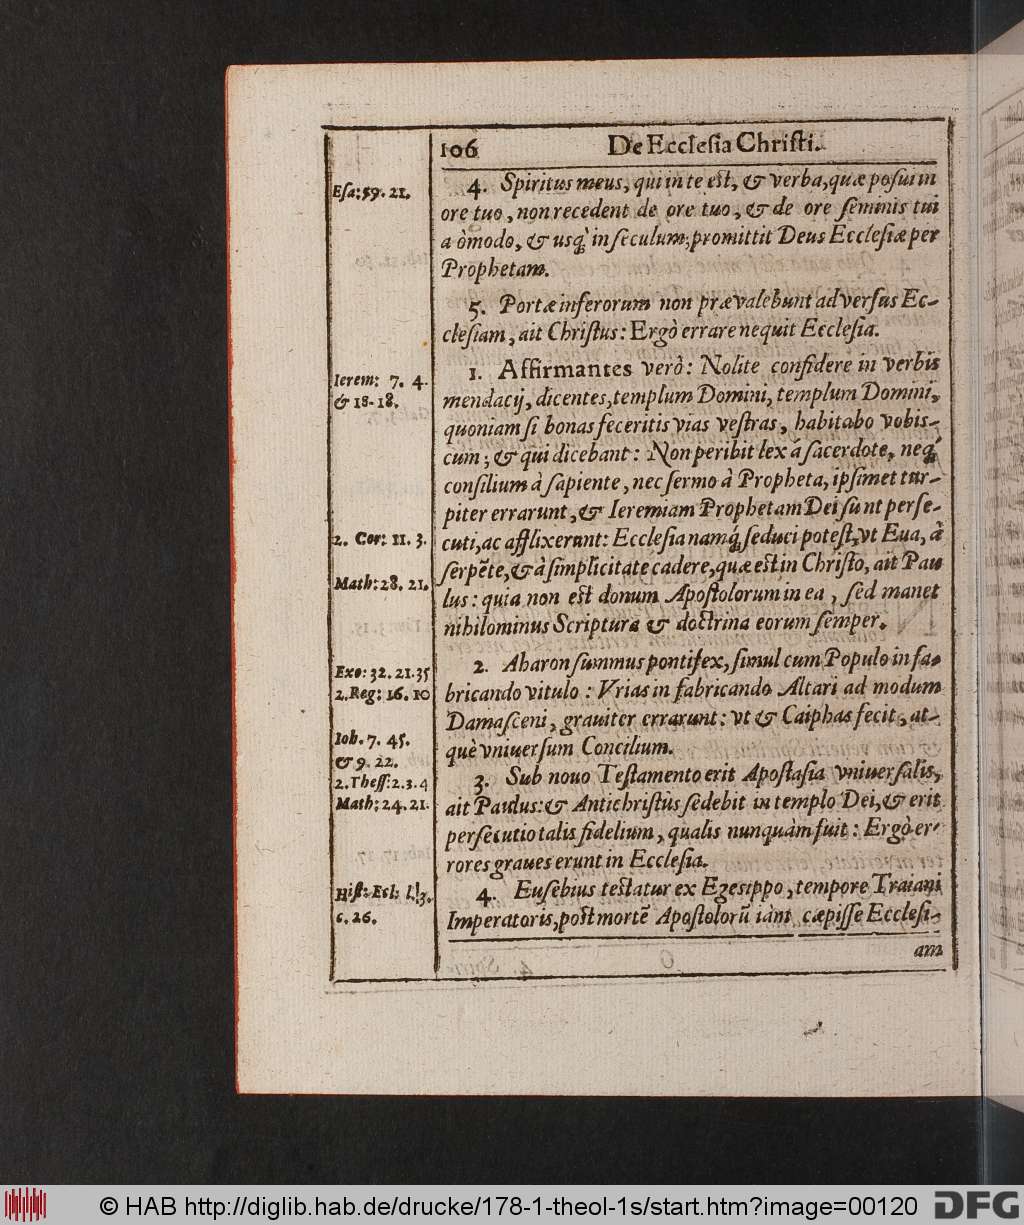 106 De Ecclesia Christi.
Esa: 59. 21.
4. Spiritus meus, qui in te est, & verba, quæ posui in
ore tuo, non recedent de ore tuo, & de ore seminis tui
a òmodo, & usq; in seculum; promittit Deus Ecclesiæ per
Prophetam.
5. Portæ inferorum non prævalebunt adversus Ec-
clesiam, ait Christus: Ergò errare nequit Ecclesia.
Ierem: 7. 4.
& 18. 18.
1. Affirmantes verò: Nolite confidere in verbis
mendacij, dicentes, templum Domini, templum Domini,
quoniam si bonas feceritis vias vestras, habitabo vobis-
cum; & qui dicebant: Non peribit lex á sacerdote, neq;
consilium à sapiente, nec sermo à Propheta, ipsimet tur-
piter errarunt, & Ieremiam Prophetam Dei sunt perse-
2. Cor: 11. 3.
cuti, ac afflixerunt: Ecclesia namq; seduci potest, vt Eua, à
serpẽte, & à simplicitate cadere, quæ est in Christo, ait Pau
Math: 28. 21.
lus: quia non est donum Apostolorum in ea, sed manet
nihilominus Scriptura & doctrina eorum semper.
Exo: 32. 21. 35
2. Reg: 16. 10
2. Aharon summus pontifex, simul cum Populo in fa-
bricando vitulo: Vrias in fabricando Altari ad modum
Damasceni, grauiter errarunt: vt & Caiphas fecit, at-
què vniuersum Concilium.
Ioh. 7. 45.
& 9. 22.
2. Thess: 2. 3. 4
Math: 24. 21.
3. Sub nouo Testamento erit Apostasia vniuersalis,
ait Paulus: & Antichristus sedebit in templo Dei, & erit
persecutio talis fidelium, qualis nunquàm fuit: Ergò er-
rores graues erunt in Ecclesia.
Hist: Ecl: l. 3.
c. 26.
4. Eusebius testatur ex Egesippo, tempore Traiani
Imperatoris, post mortẽ Apostolorũ iàm cæpisse Ecclesi-
am
© HAB http://diglib.hab.de/drucke/178-1-theol-1s/start.htm?image=00120 DFG